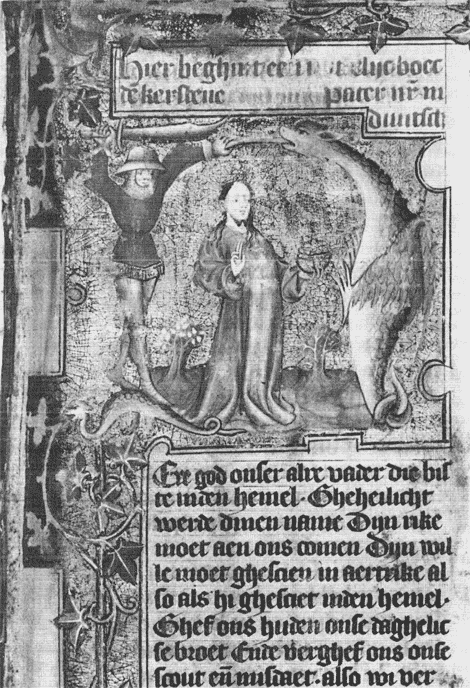 Hier beghint een
de kersten pater nr̄ in
duutsch
Ere god onser alre vader die bist
te inden hemel · Gheheilicht
werde dinen name Dijn rike
moet aen ons comen Dijn wil
le moet ghescien in aertrike al
so als hi ghesciet inden hemel ·
Ghef ons huden onse daghelic
se broet Ende verghef ons onse
scout en̄ misdaet · also wi ver